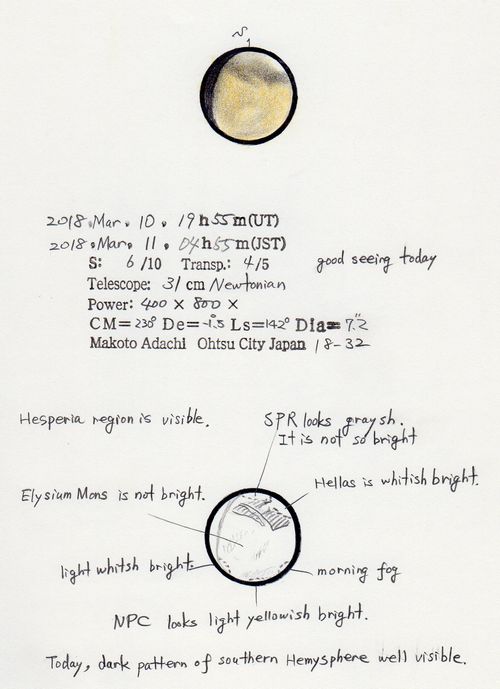 S
2018.Mar. 10. 19h55m(UT)
2018.Mar. 11. 04h55m(JST)
S: 6/10 Transp.: 4/5 good seeing today
Telescope: 31 cm Newtonian
Power: 400 × 800 ×
CM=238° De=-1.5° Ls=142° Dia=7.2"
Makoto Adachi Ohtsu City Japan 18-32
Hesperia region is visible.
SPR looks graysh.
It is not so bright
Hellas is whitish bright.
Elysium Mons is not bright.
light whitsh bright.
morning fog
NPC looks light yellowish bright.
Today, dark pattern of southern Hemysphere well visible.